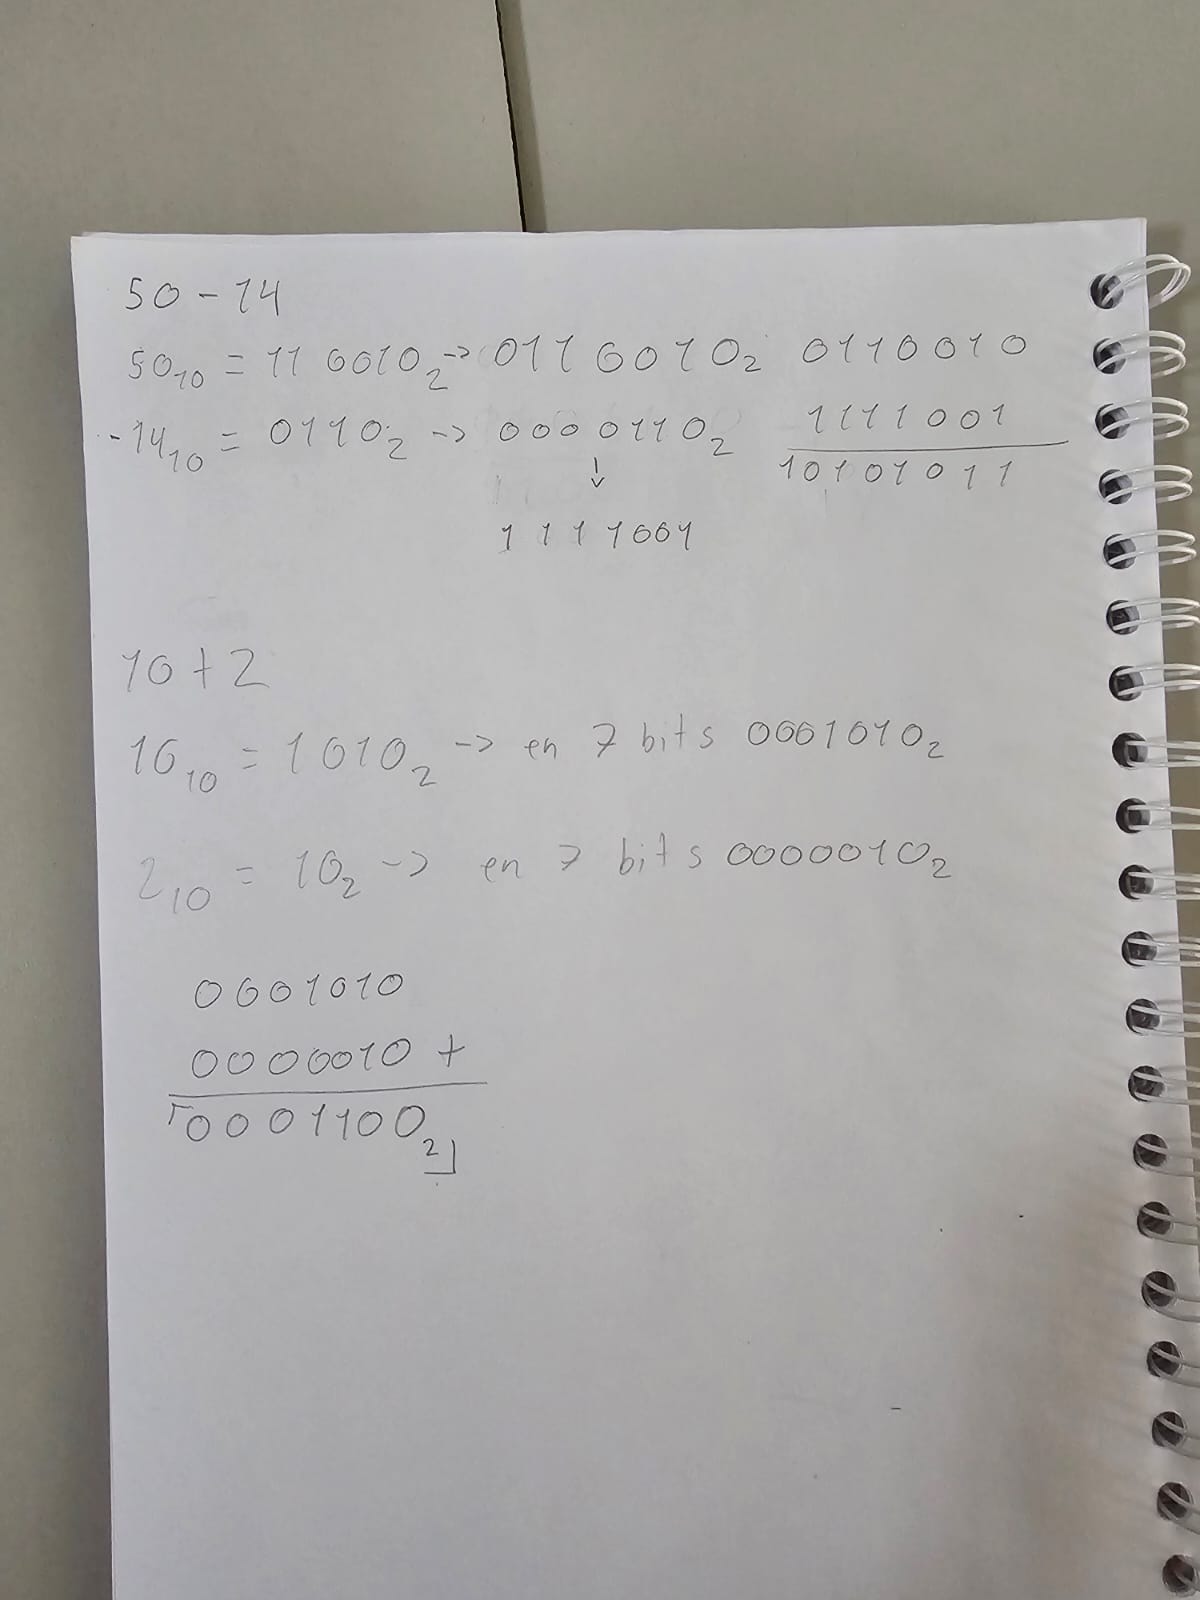 50 - 14
50₁₀ = 110010₂ -> 0110010₂ 0110010
-14₁₀ = 0110₂ -> 0000110₂ 1111001
10101011
↓
1111001
10 + 2
10₁₀ = 1010₂ -> en 7 bits 0001010₂
2₁₀ = 10₂ -> en 7 bits 0000010₂
0001010
0000010 +
0001100₂